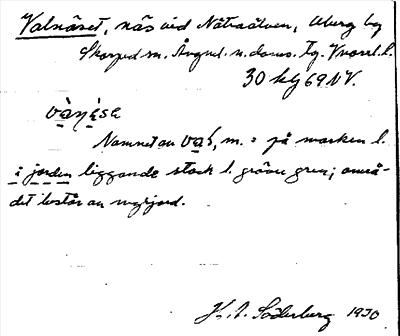 Valnäset, näs vid Nätraälven, Uberg by
Skorped sn. Ångml. n. doms. tg. Vnorrl. l.
30 kbl 69 NV.
và̱ṇɛ́sɛ
Namnet av vaḷ, m. = på marken l.
i jorden liggande stock l. grövre gren; områ-
det består av myrjord.
H. A. Söderberg 1930